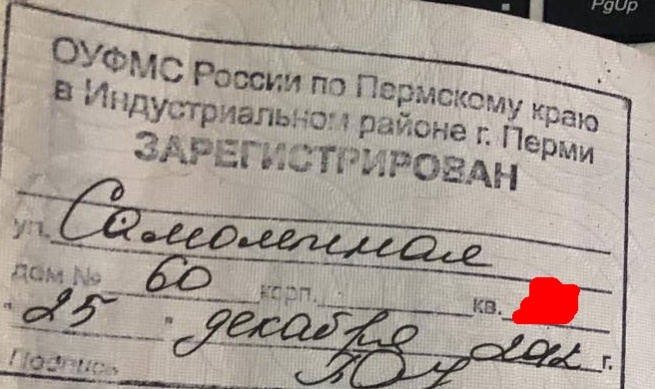 PgUp
ОУФМС России по Пермскому краю
в Индустриальном районе г. Перми
ЗАРЕГИСТРИРОВАН
ул. Самолетная
дом № 60 корп. кв.
"25" декабря 2012 г.
Подпись